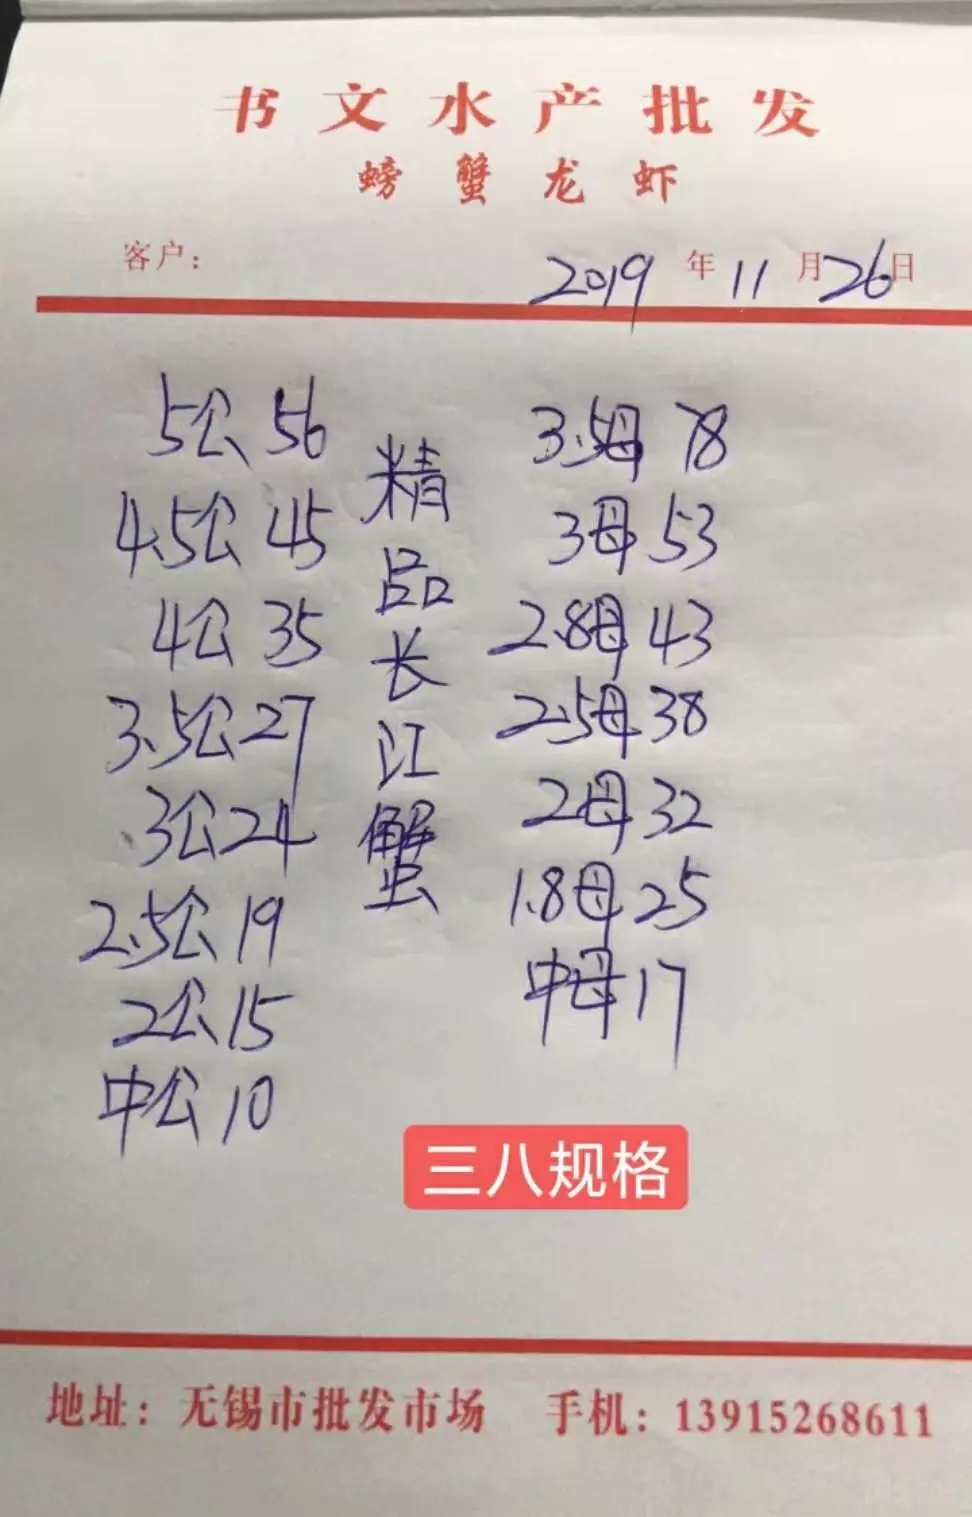 书文水产批发
螃蟹龙虾
客户：
2019年11月26日
5公 56
4.5公 45
4公 35
3.5公 27
3公 24
2.5公 19
2公 15
中公 10
精品长江蟹
3.5母 78
3母 53
2.8母 43
2.5母 38
2母 32
1.8母 25
中母 17
三八规格
地址：无锡市批发市场 手机：13915268611